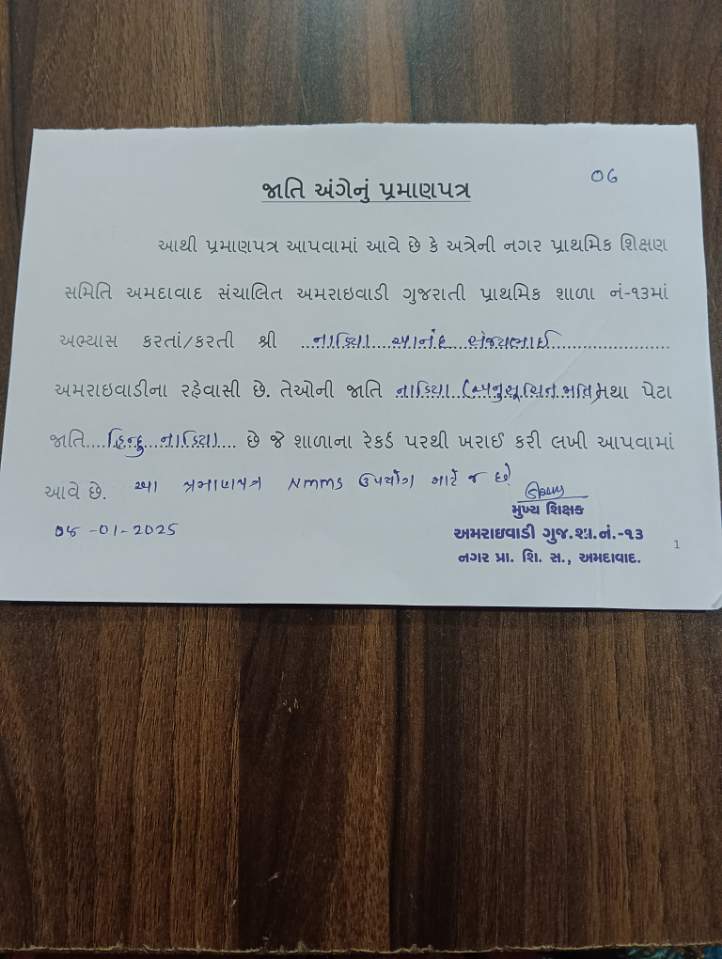 06
જાતિ અંગેનું પ્રમાણપત્ર
આથી પ્રમાણપત્ર આપવામાં આવે છે કે અત્રેની નગર પ્રાથમિક શિક્ષણ
સમિતિ અમદાવાદ સંચાલિત અમરાઇવાડી ગુજરાતી પ્રાથમિક શાળા નં-૧૩માં
અભ્યાસ કરતાં/કરતી શ્રી ..નાડિયા આનંદ સંજયભાઈ..........
અમરાઇવાડીના રહેવાસી છે. તેઓની જાતિ નાડિયા (અનુસૂચિત જાતિ) તથા પેટા
જાતિ....હિન્દુ નાડિયા.... છે જે શાળાના રેકર્ડ પરથી ખરાઈ કરી લખી આપવામાં
આવે છે. આ પ્રમાણપત્ર NMMS ઉપયોગ માટે જ છે.
મુખ્ય શિક્ષક
08-01-2025
અમરાઇવાડી ગુજ.શા.નં.-૧૩
નગર પ્રા. શિ. સ., અમદાવાદ.
1